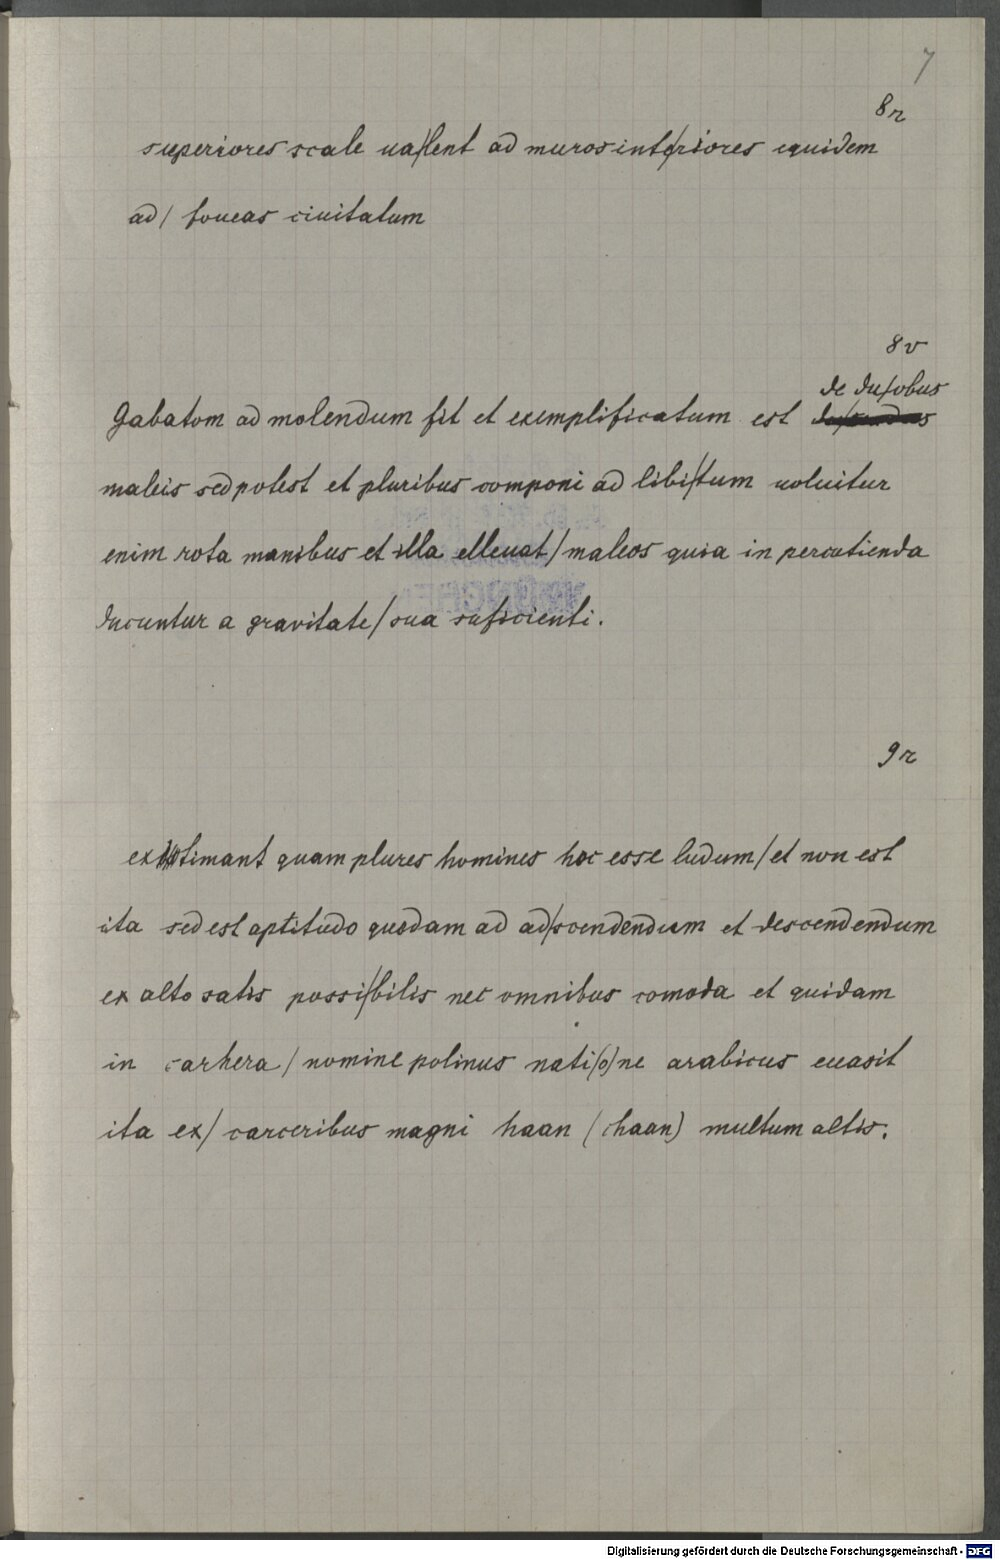 7
8r
superiores scale ua/lent ad muros inte/riores equidem
ad/ foueas ciuitatum
8v
de du/obus
Gabatom ad molendum fit et exemplificatum est
maleis sed potest et pluribus componi ad libi/tum uoluitur
enim rota manibus et illa elleuat/maleos quia in percutienda
ducuntur a gravitate/sua suficienti.
9r
extimant quam plures homines hoc esse ludum/et non est
ita sed est aptitudo quedam ad ad/scendendum et descendendum
ex alto satis possi/bilis nec omnibus comoda et quidam
in carhera/nomine polinus nati(o)ne arabicus euasit
ita ex/carceribus magni haan (chaan) multum altis.
Digitalisierung gefördert durch die Deutsche Forschungsgemeinschaft - DFG